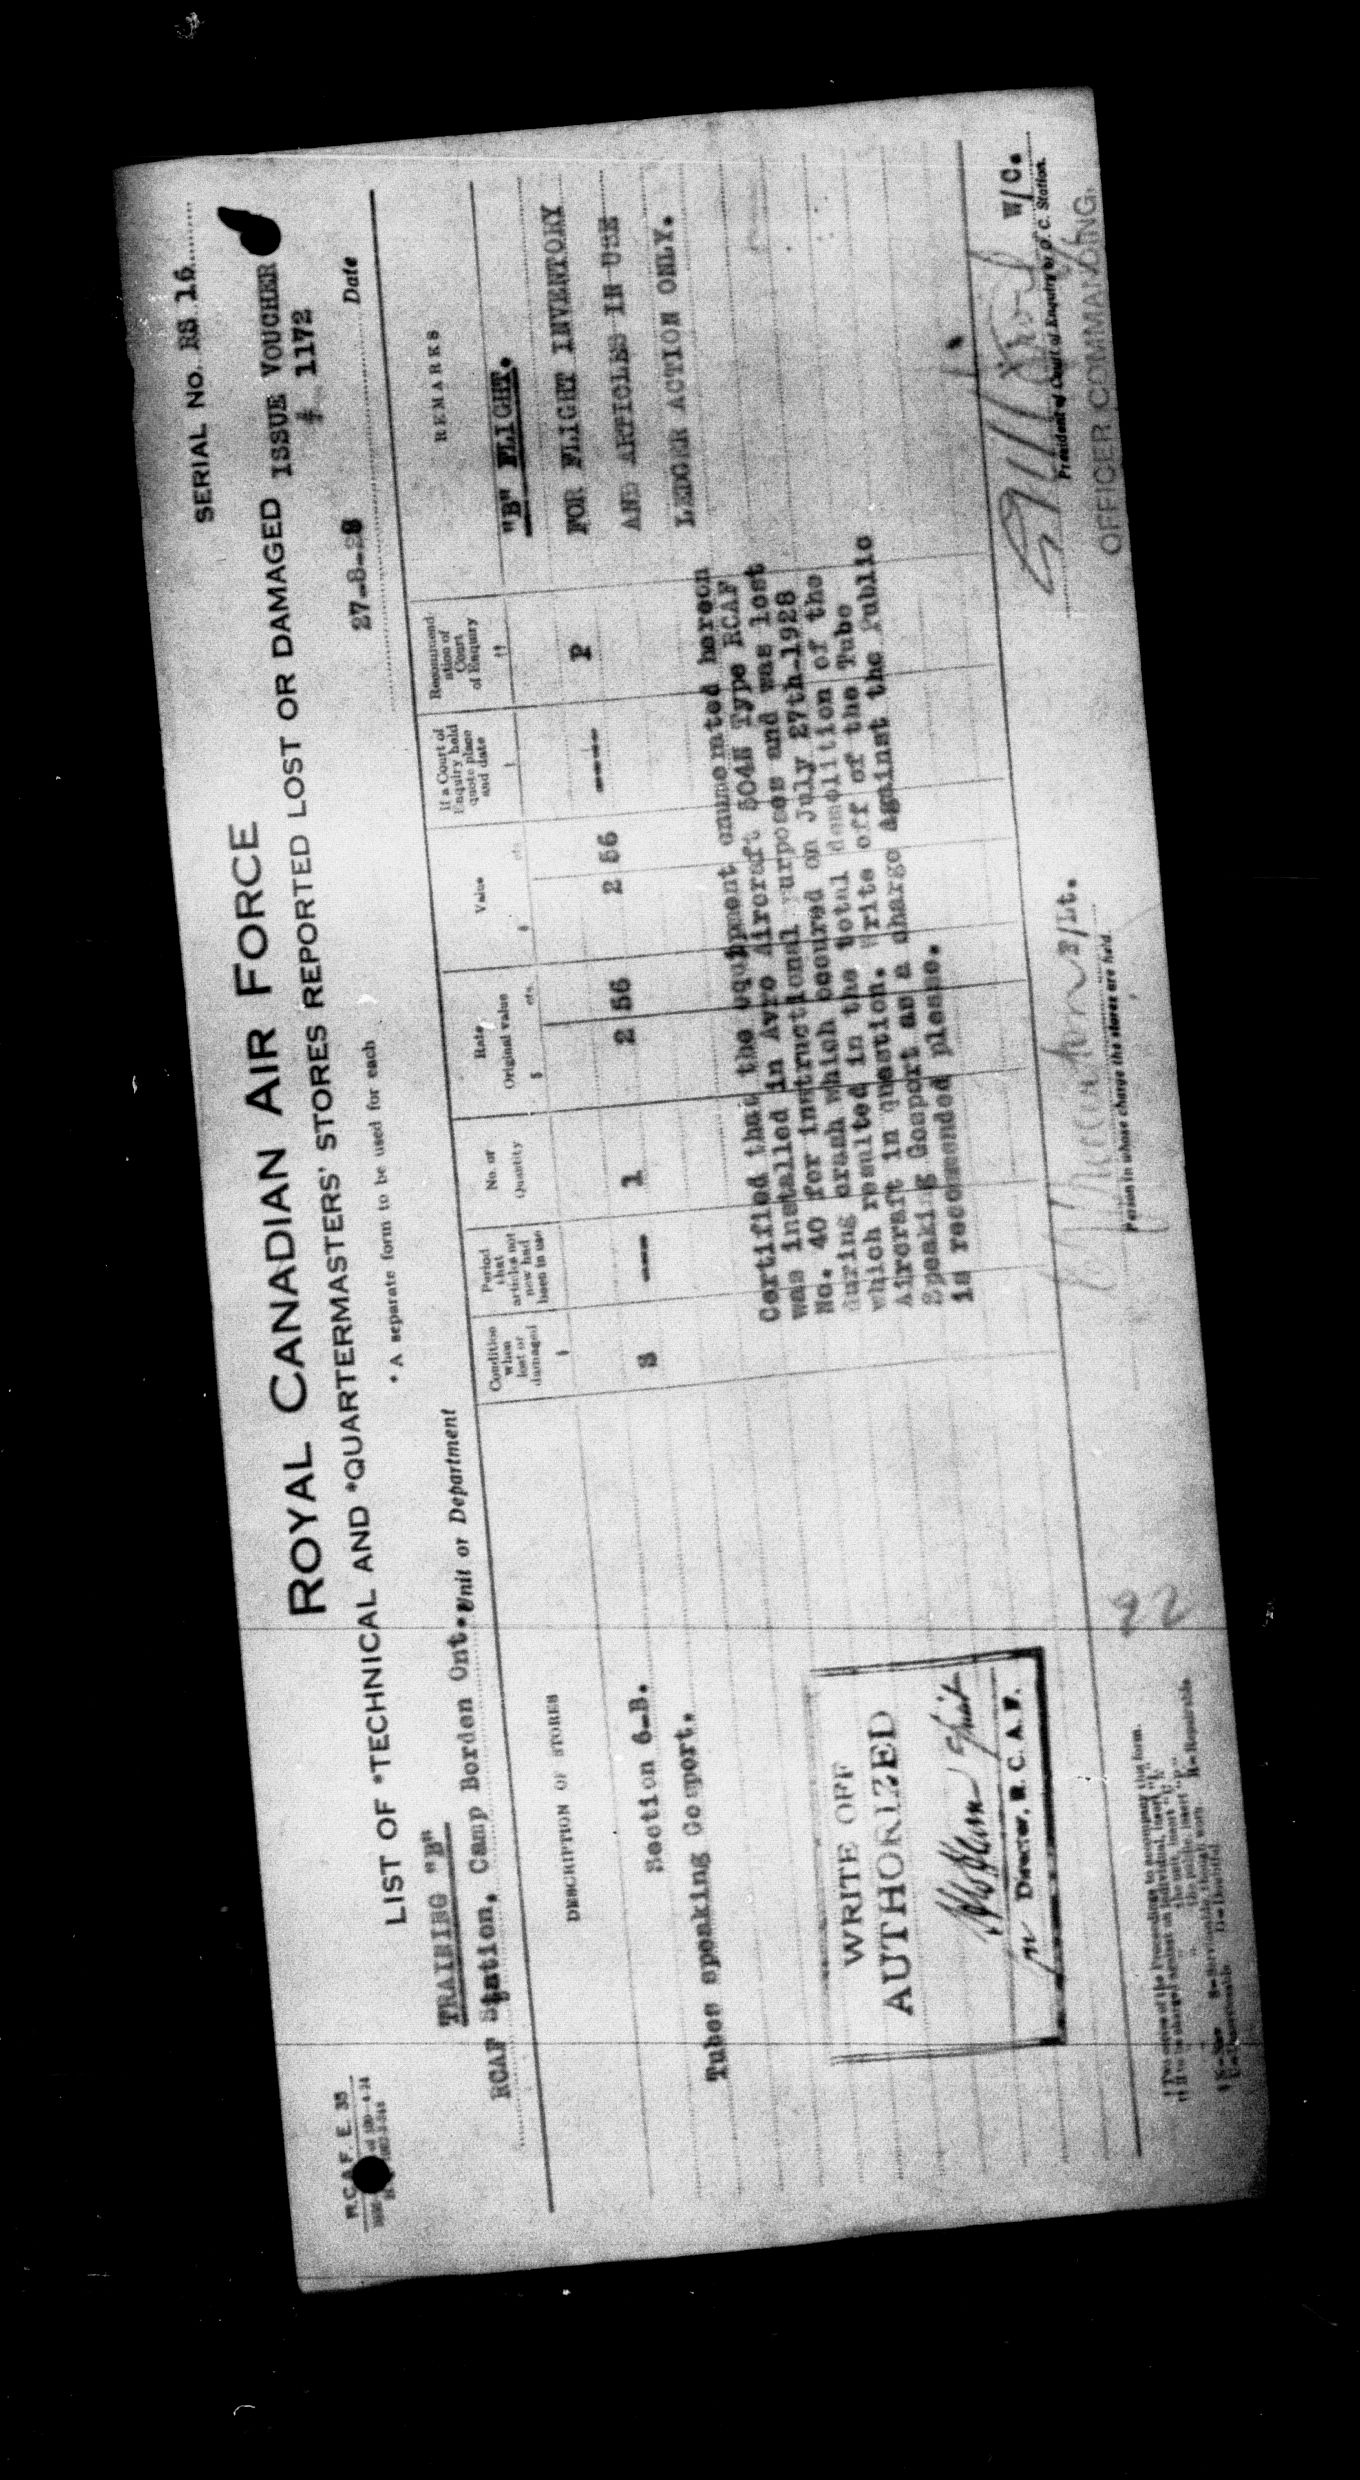 R.C.A.F. E. 35
SERIAL No. RS 16
ROYAL CANADIAN AIR FORCE
LIST OF *TECHNICAL AND *QUARTERMASTERS' STORES REPORTED LOST OR DAMAGED ISSUE VOUCHER
# 1172
* A separate form to be used for each
TRAINING "B"
RCAF Station, Camp Borden Ont. Unit or Department
27-8-28 Date
DESCRIPTION OF STORES
Condition when lost or damaged
Period that articles not new had been in use
No. or Quantity
Rate Original value
$ cts.
Value
$ cts.
If a Court of Enquiry held quote place and date
Recommendation of Court of Enquiry
REMARKS
"B" FLIGHT.
Section 6-B.
Tubes speaking Gosport.
S --- 1 2 56 2 56 ---- P
FOR FLIGHT INVENTORY
AND ARTICLES IN USE
LEDGER ACTION ONLY.
Certified that the equipment enumerated hereon
was installed in Avro Aircraft 504N Type RCAF
No. 40 for instructional purposes and was lost
during crash which occured on July 27th-1928
which resulted in the total demolition of the
Aircraft in question. Write off of the Tube
Speaking Gosport as a charge against the Public
is recommended please.
WRITE OFF
AUTHORIZED
Director, R. C. A. F.
F/Lt.
Person in whose charge the stores are held.
W/C.
President of Court of Enquiry or O. C. Station.
OFFICER COMMANDING.
22